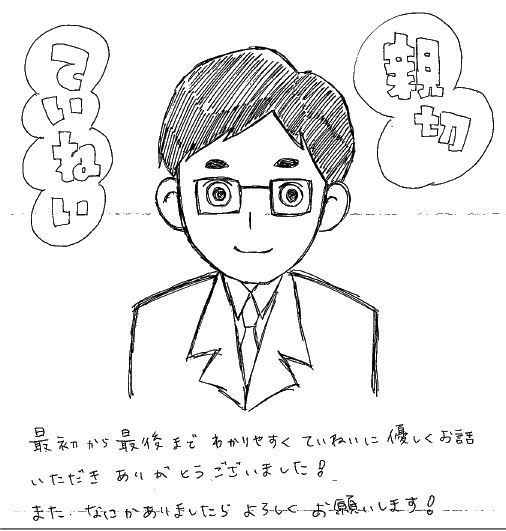 ていねい
親切
最初から最後までわかりやすくていねいに優しくお話
いただきありがとうございました!
また、なにかありましたらよろしくお願いします!